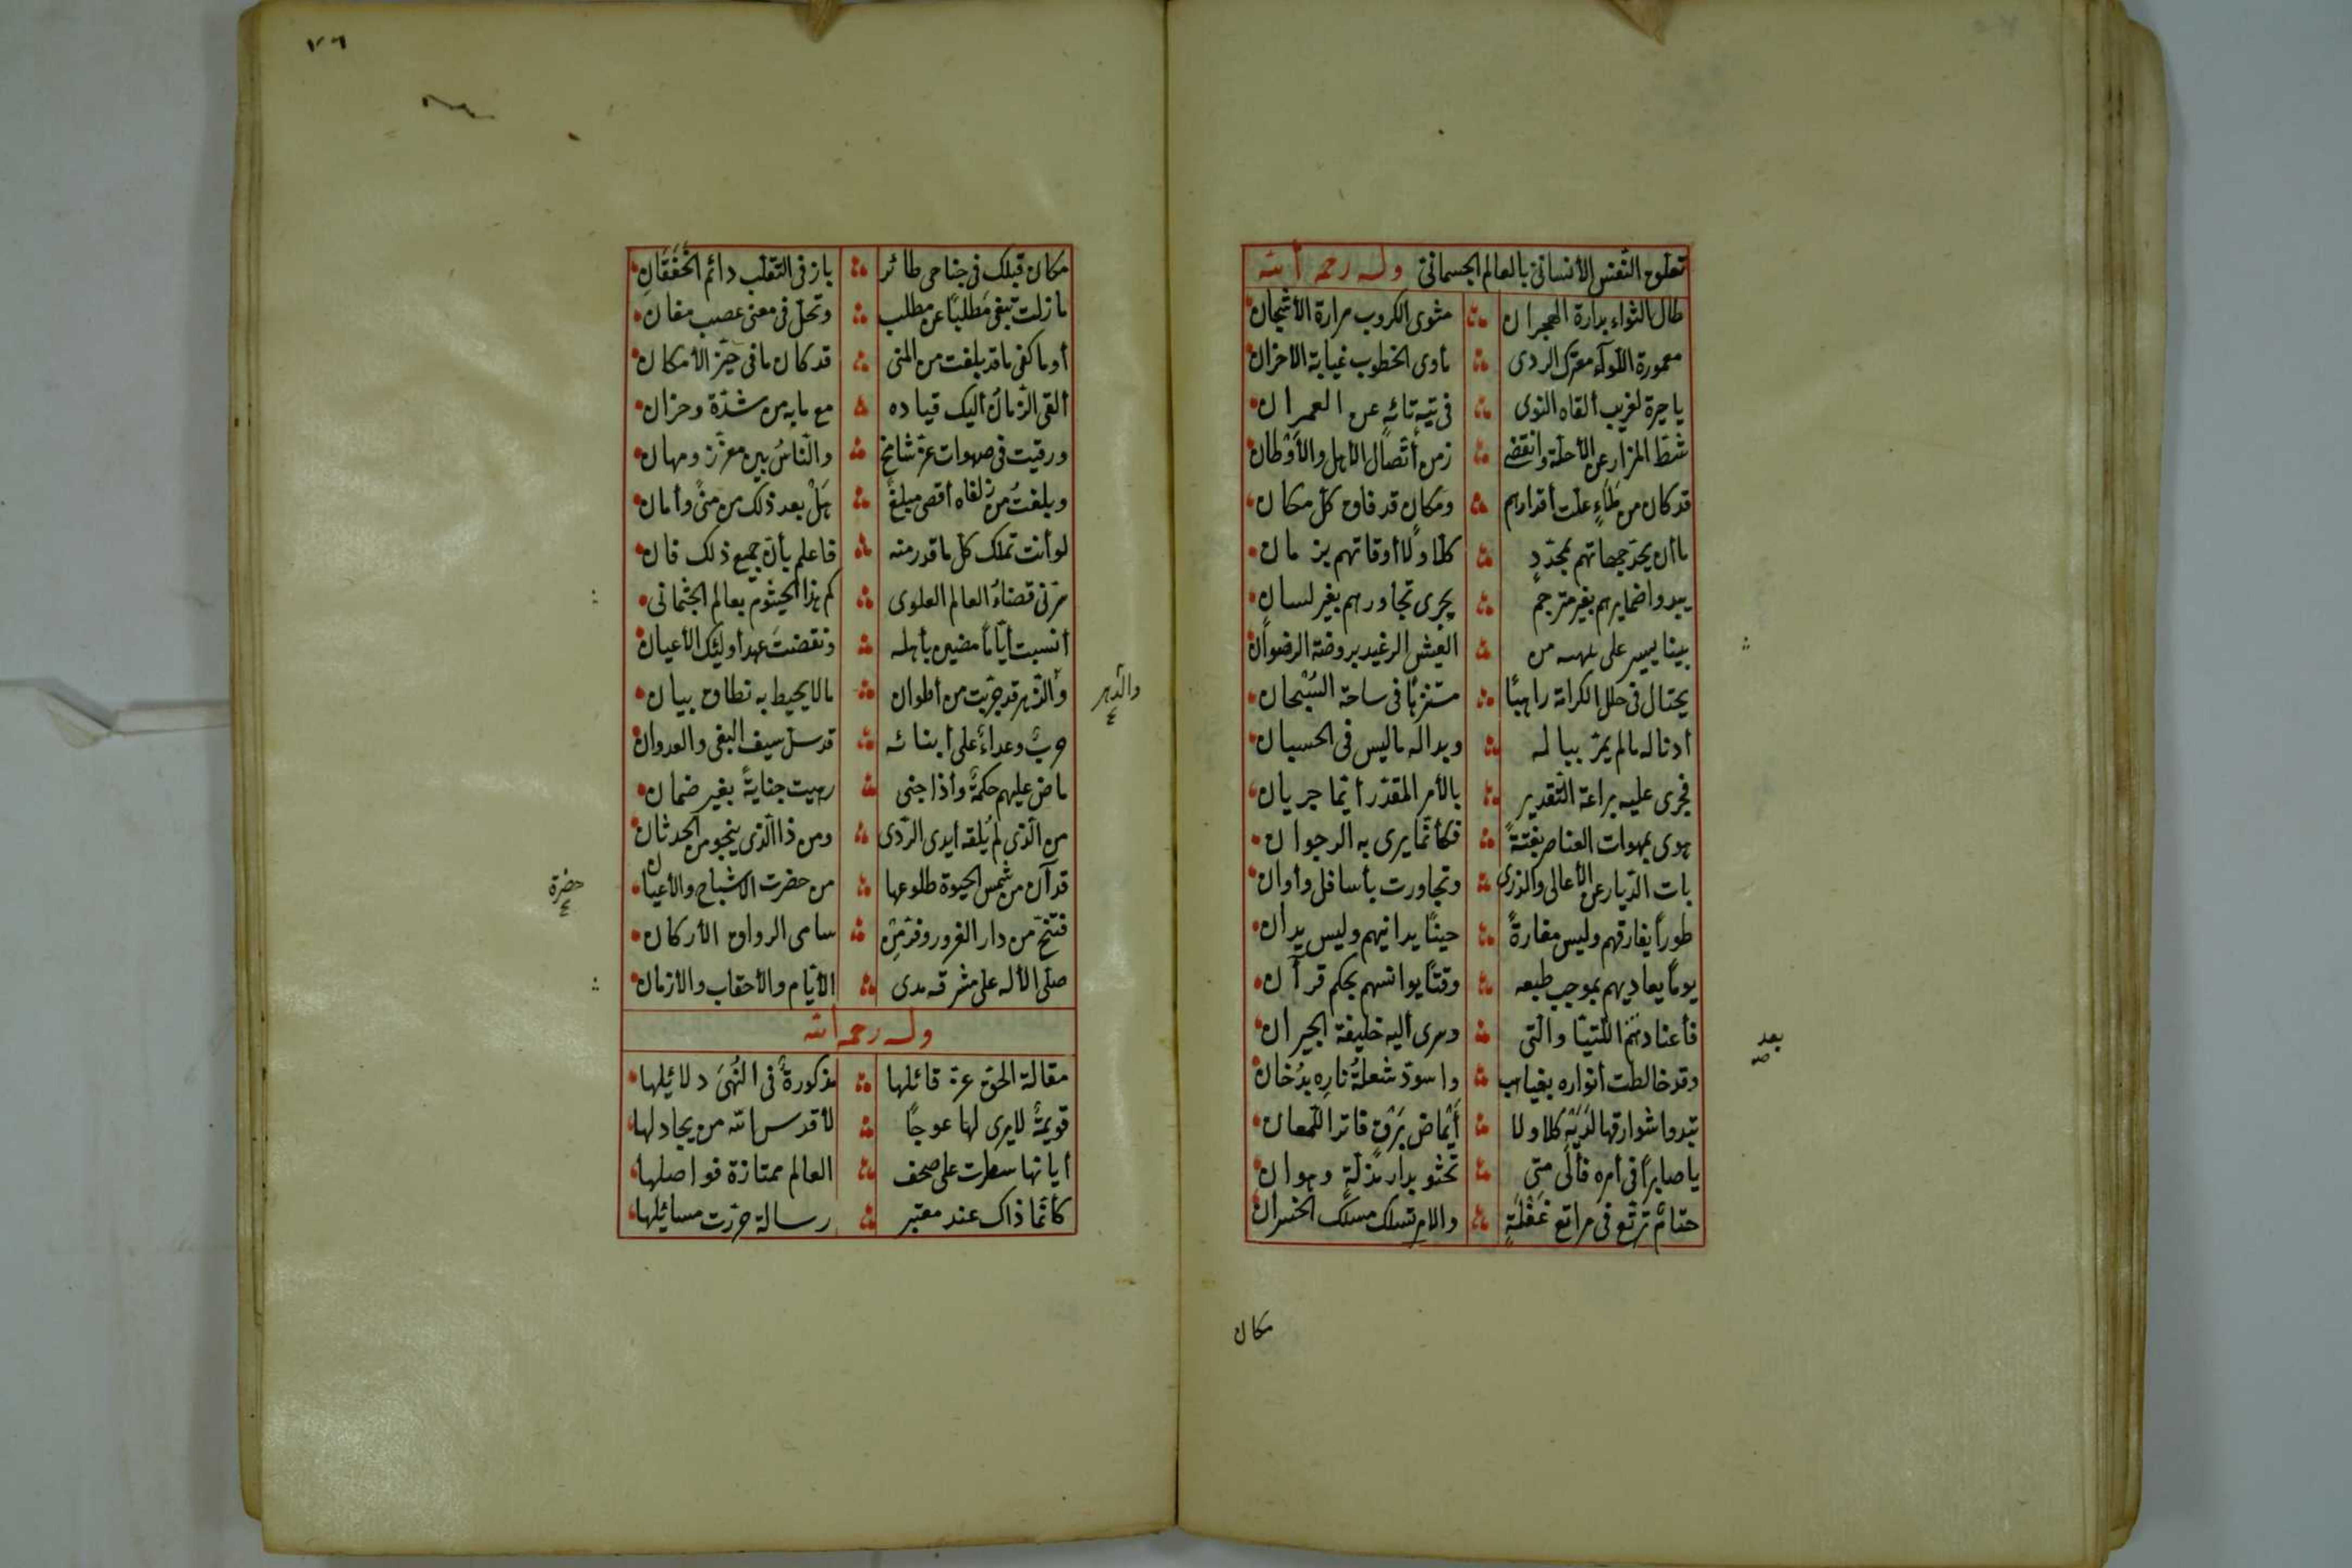 تعلوح النفس الأنسانى بالعالم الجسمانى وله رحمه الله
طال الثواء بدارة الهجران مثوى الكروب مرارة الأشجان
معمورة اللأواء معترك الردى مأوى الخطوب غيابة الاحزان
يا حيرة لغريب ألقاه النوى فى تيه تائه عن العمران
شط المزار عن الأحلة وانقضى زمن أتصال الأهل والأوطان
قد كان من علت أقدارهم ومكان قد فاق كل مكان
ما أن يحد جهاتهم بمحدد كلا ولا أوقاتهم بزمان
يبدوا ضمايرهم بغير مترجم يجرى تجاورهم بغير لسان
بينا يسير على من العيش الرغيد بروضة الرضوان
يختال فى حلل الكرامة راهبًا متنزهًا فى ساحة السبحان
أدناله مالم يمر بباله وبداله ماليس فى الحسبان
فجرى عليه براعة التقدير بالأمر المقدر أيما جريان
هوى بمهوات العناصر بغتةً فكأنما يرى به الرجوان
بات الديار عن الأعالى والذرى وتجاورت بأسافل وأوان
طورًا يفارقهم وليس مفارةً حينًا يدانيهم وليس بدان
يومًا يعاديهم بموجب طبعه وقتًا يوانسهم بحكم قرآن
فأعناد ثم اللتيا والتى وسرى أليه خليفة الجيران
بعد
وقد خالطت أنواره بغياهب واسود شعلة ناره بدخان
تبدوا شوارقها لديه كلا ولا أيماض برق فاتر اللمعان
يا صابرًا فى أمره فألى متى تحثو بدار مذلة وهوان
حتام ترتع فى مراتع غفلة والام تسلك مسلك الخسران
مكان
٧٦
مكان قبلك فى جناحى طائر باز فى التقلب دائم الخفقان
ما زلت تبغى مطلبًا عن مطلب وتحل فى معنى عصب مغان
أوما كفى ما قد بلغت من المنى قد كان ما فى حيز الأمكان
ألقى الزمان أليك قياده مع ما به من شدة وحران
ورقيت فى صهوات عز شامخ والناس بين معزز ومهان
وبلغت من زلفاه أقصى مبلغ هل بعد ذلك من منى وأمان
لو أنت تملك كل ما قدرمنه فاعلم بأن جميع ذلك فان
قضاء العالم العلوى كم هذا الجثوم بعالم الجثمانى
أنسيت أيامًا مضين بأهله ونقضت عهد أوليك الأعيان
وألذهر قد جربت من أطوان مالا يحيط به نطاق بيان
والدهر
حرب وعداء على أبنائه قد سل سيف البغى والعدوان
ماض عليهم حكمه وأذا جنى جناية بغير ضمان
من الذى لم يلقه أيدى الردى ومن ذا الذى ينجو من الحدثان
قد آن من شمس الحيوة طلوعها من حضرت الأشباح والأعيان
حضرة
فتنح من دار الغرور وفز من سامى الرواق الأركان
صلى الأله على مشرقه مدى الأيام والأحقاب والأزمان
وله رحمه الله
مقالة الحق عز قائلها مذكورة فى النهى دلائلها
قويمة لايرى لها عوجًا لأقدس الله من يجادلها
أياتها سطرت على صحف العالم ممتازة فواصلها
كأنما ذاك عند معتبر رسالة حررت مسائلها